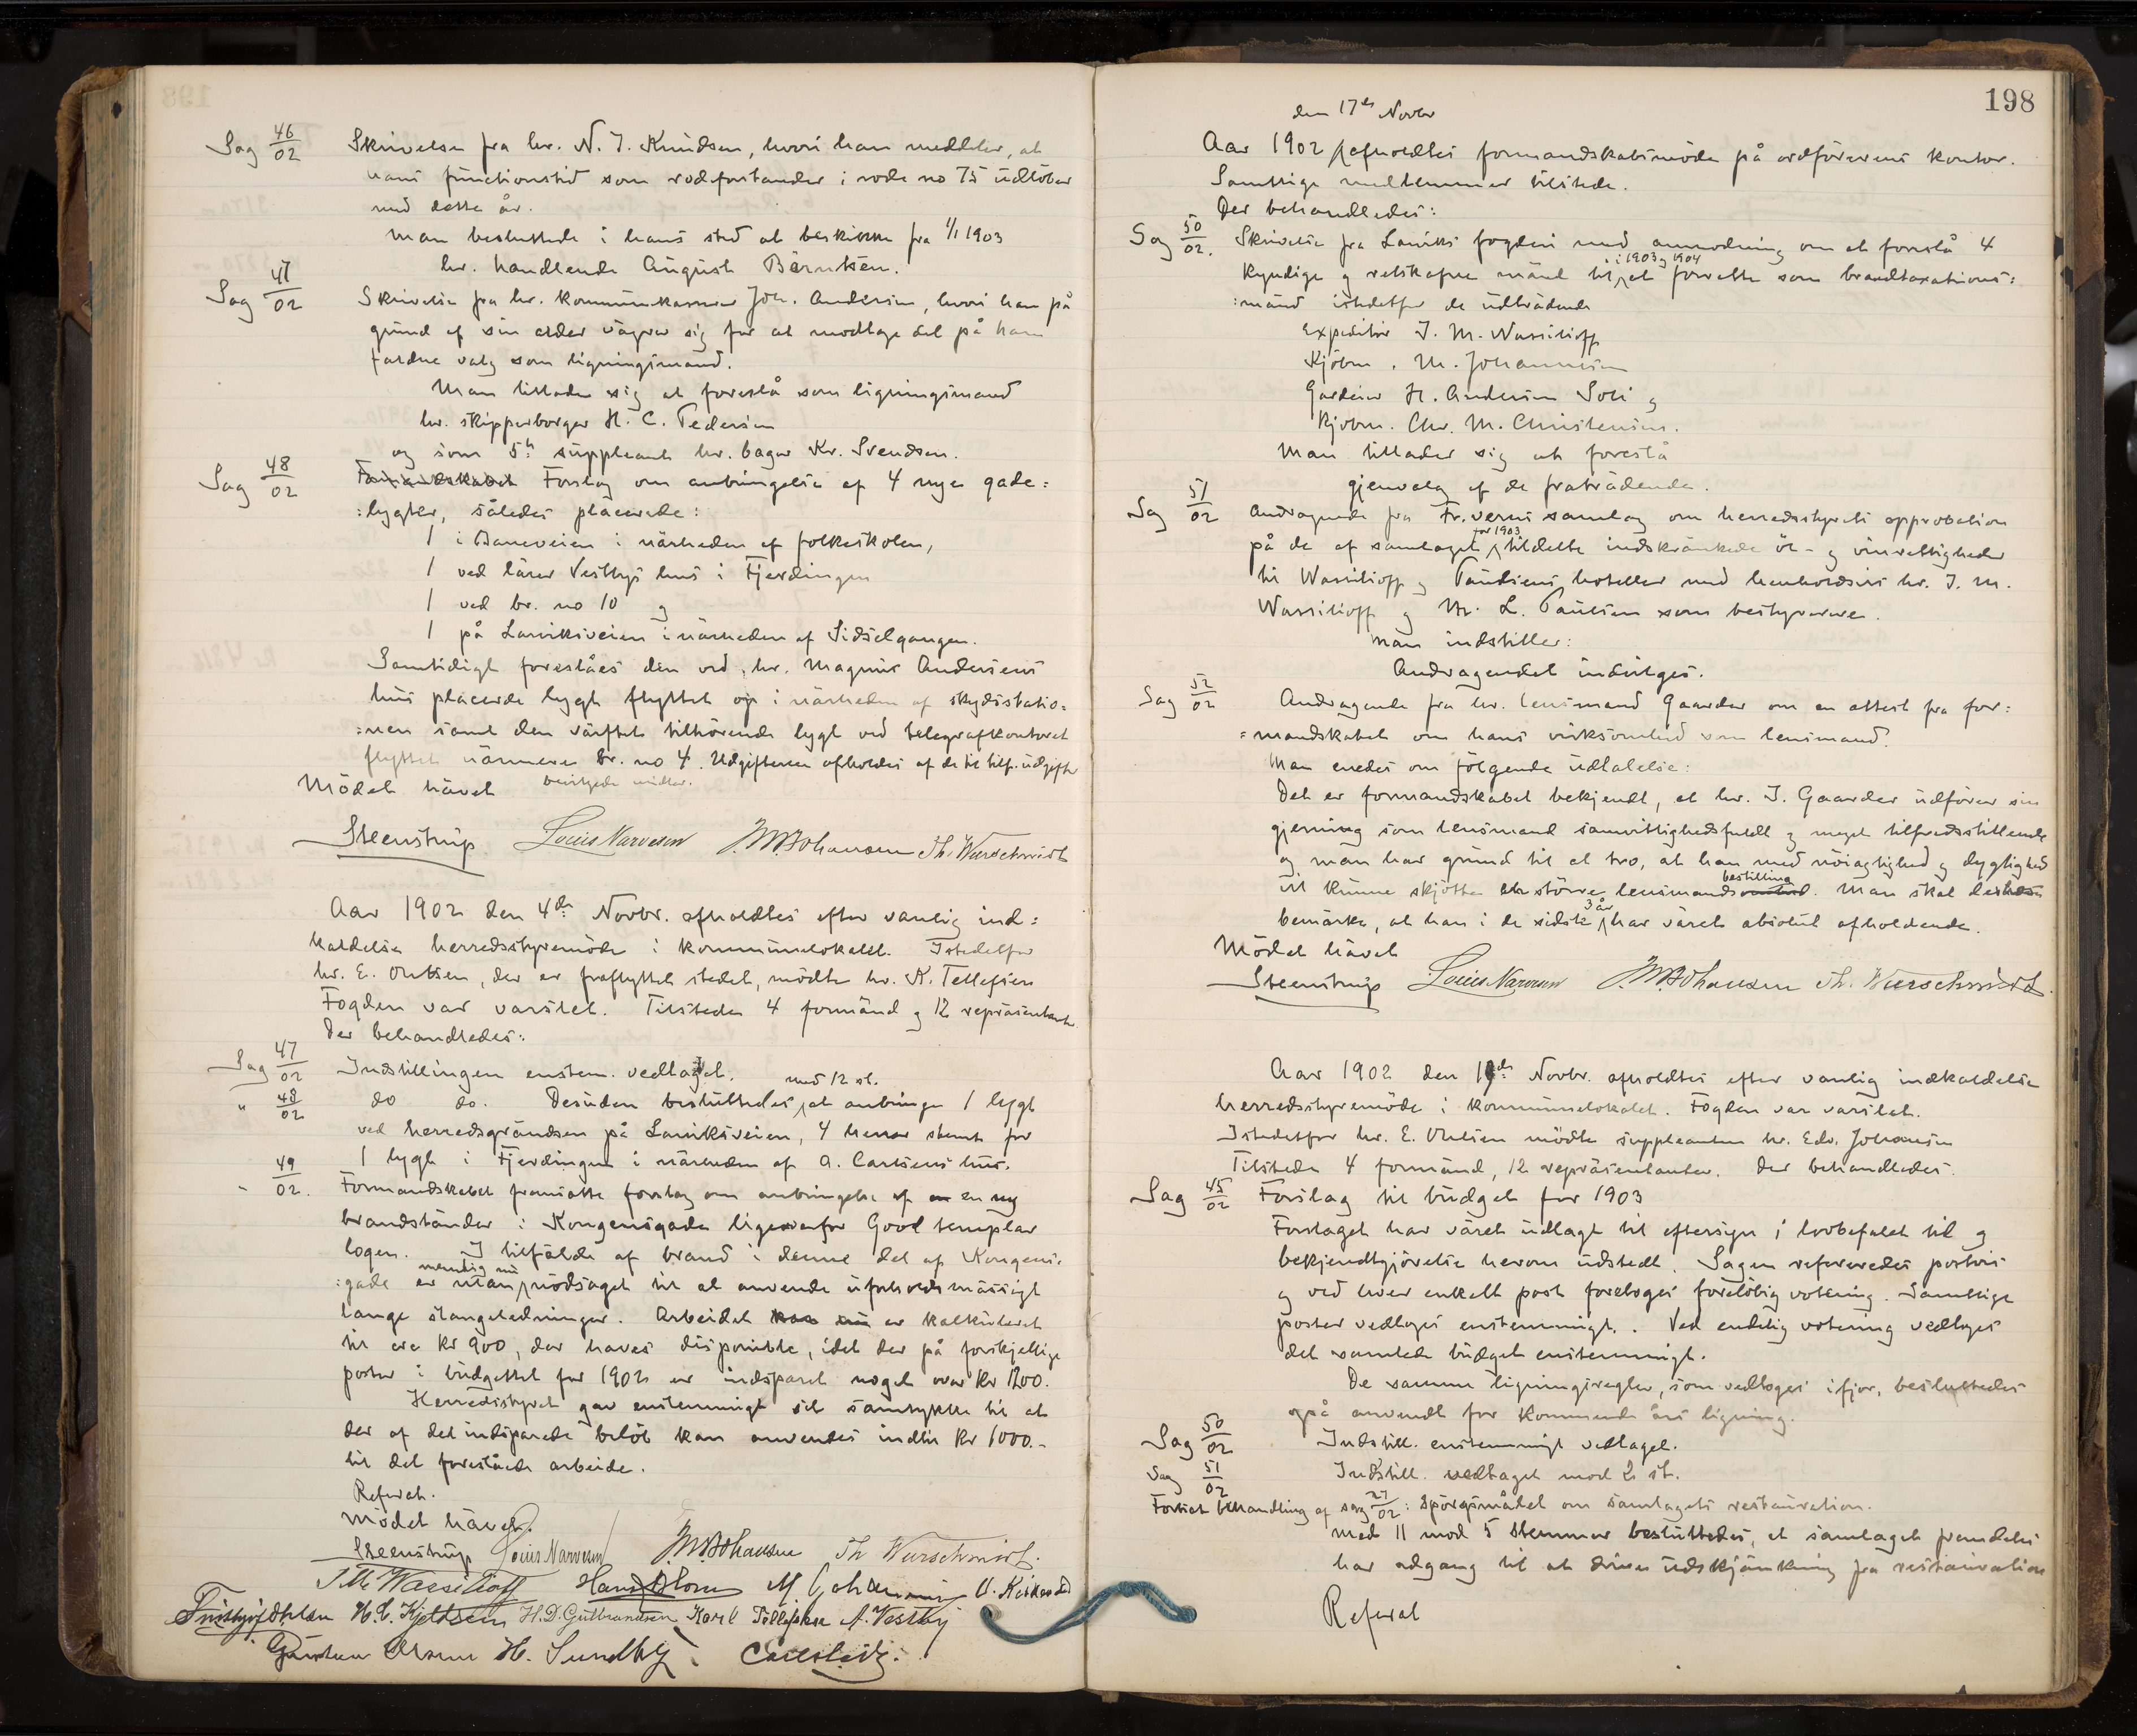 Sag 46/02 Skrivelse fra hr. N. J. Knudsen, hvori han meddeler, at
hans functionstid som rodeforstander i rode no 75 udløber
med dette år.
Man besluttede i hans sted at beskikke fra 1/1 1903
hr. handlende August Bärntsen.
Sag 47/02 Skrivelse fra hr. kommunekasserer Joh. Andersen, hvori han på
grund af sin alder vägrer sig for at modtage det på ham
faldne valg som ligningsmand.
Man tillader sig at foreslå som ligningsmand
hr. skipperborger H. C. Pedersen
og som 5te suppleant hr. bager Kr. Svendsen.
Sag 48/02 Formandskabet Forslag om anbringelse af 4 nye gade=
:lygter, således placerede:
1 i Baneveien i närheden af folkeskolen,
1 ved lärer Vestbys hus i Fjerdingen
1 ved br. no 10 og
1 på Larviksveien i närheden af Sidselgangen.
Samtidigt foreslåes den ved hr. Magnus Andersens
hus placerede lygt flyttet op i närheden af skydsstatio=
:nen samt den värftet tilhörende lygt ved telegrafkontoret
flyttet närmere br. no 4. Udgifterne afholdes af de til tilf. udgifter
bevilgede midler.
Mödet hävet
Steenstrup Louis Narvesen J. M. Johansen Th. Wurschmidt
Aar 1902 den 4de Novbr. afholdtes efter vanlig ind=
kaldelse herredsstyremöde i kommunelokalet. Istedetfor
hr. E. Ohlsen, der er fraflyttet stedet, mödte hr. K. Tellefsen
Fogden var varslet. Tilstede 4 formänd og 12 repräsentanter
Der behandledes:
Sag 47/02 Indstillingen enstem. vedtaget.
" 48/02 do do. Desuden besluttedes med 12 st. at anbringe 1 lygt
ved herredsgrändsen på Larviksveien, 4 herrer stemte for
1 lygt i Fjerdingen i närheden af A. Carlsens hus.
" 49/02. Formandskabet fremsatte forslag om anbringelse af en ny
brandständer i Kongensgade ligeoverfor Good templar
logen. I tilfälde af brand i denne del af Kongens=
:gade er man nemlig nu nödsaget til at anvende uforholdsmässigt
lange slangeledninger. Arbeidet er kalkuleret
til ca Kr 900, der haves disponible, idet der på forskjellige
poster i budgettet for 1902 er indsparet noget over Kr 1200.
Herredsstyret gav enstemmigt sit samtykke til at
der af det indsparede belöb kan anvendes indtil Kr 1000.-
til det foreståede arbeide.
Referat.
Mödet hävet.
Steenstrup Louis Narvesen J. M. Johansen Th Wurschmidt.
J M Wassilioff Hans Blom M. Johannesen
H. C. Kjeldsen H. D. Gulbrandsen Karl Tellefsen A. Vestby
H. Sundby.
198
den 17de Novbr
Aar 1902 afholdtes formandskabsmöde på ordförerens kontor.
Samtlige medlemmer tilstede.
Der behandledes:
Sag 50/02. Skrivelse fra Larviks fogderi med anmodning om at foreslå 4
kyndige og retskafne mänd til i 1903 og 1904 at forrette som brandtaxations:
:mänd istedetfor de udträdende
Expeditör J. M. Wassilioff
Kjöbm. M. Johannesen
Gardeier H. Andersen Soli og
Kjöbm. Chr. M. Christensen.
Man tillader sig at foreslå
gjenvalg af de fraträdende.
Sag 51/02 Andragende fra Fr.verns samlag om herredsstyrets approbation
på de af samlaget for 1903 tildelte indskränkede öl- og vinrettigheder
til Wassilioff og Paulsens hoteller med henholdsvis hr. J. M.
Wassilioff og Mr. L. Paulsen som bestyrere.
Man indstiller:
Andragendet indvilges.
Sag 52/02 Andragende fra hr. lensmand Gaarder om en attest fra for=
=mandskabet om hans virksomhed som lensmand.
Man enedes om fölgende udtalelse:
Det er formandskabet bekjendt, at hr. J. Gaarder udförer sin
gjerning som lensmand samvittighedsfuldt og meget tilfredsstillende
og man har grund til at tro, at han med nöiagtighed og dygtighed
vil kunne skjötte en större lensmandsbestilling. Man skal
bemärke, at han i de sidste 3 år har väret absolut afholdende.
Mödet hävet
Steenstrup Louis Narvesen J. M. Johansen Th. Wurschmidt.
Aar 1902 den Novbr. afholdtes efter vanlig indkaldelse
herredsstyremöde i kommunelokalet. Fogden var varslet.
Istedetfor hr. E. Ohlsen mödte suppleanten hr. Edv. Johansen
Tilstede 4 formänd, 12 repräsentanter. Der behandledes.
Sag 45/02 Forslag til budget for 1903
Forslaget har väret udlagt til eftersyn i lovbefalet tid og
bekjendtgjörelse herom udstedt. Sagen refereredes postvis
og ved hver enkelt post foretoges forelöbig votering. Samtlige
poster vedtoges enstemmigt. Ved endelig votering vedtoges
det samlede budget enstemmigt.
De samme ligningsregler, som vedtoges ifjor, besluttedes
også anvendt for kommende års ligning.
Sag 50/02 Indstill. enstemmigt vedtaget.
Sag 51/02 Indstill. vedtaget mod 2 st.
Fortsat behandling af sag 27/02: Spörgsmålet om samlagets restauration.
Med 11 mod 5 stemmer besluttedes, at samlaget fremdeles
har adgang til at drive udskjänkning fra restauration
Referat